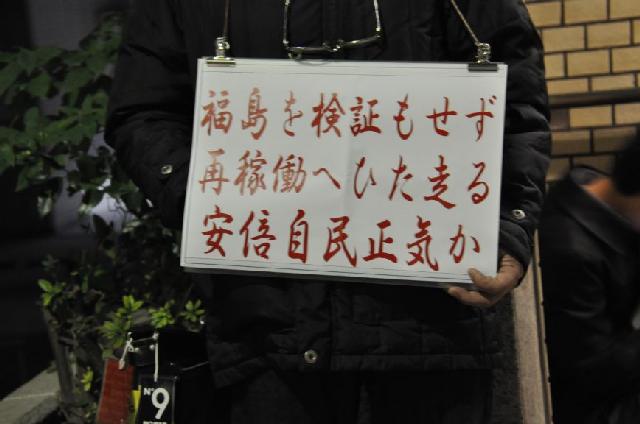 福島を検証もせず
再稼働へひた走る
安倍自民正気か
N°9